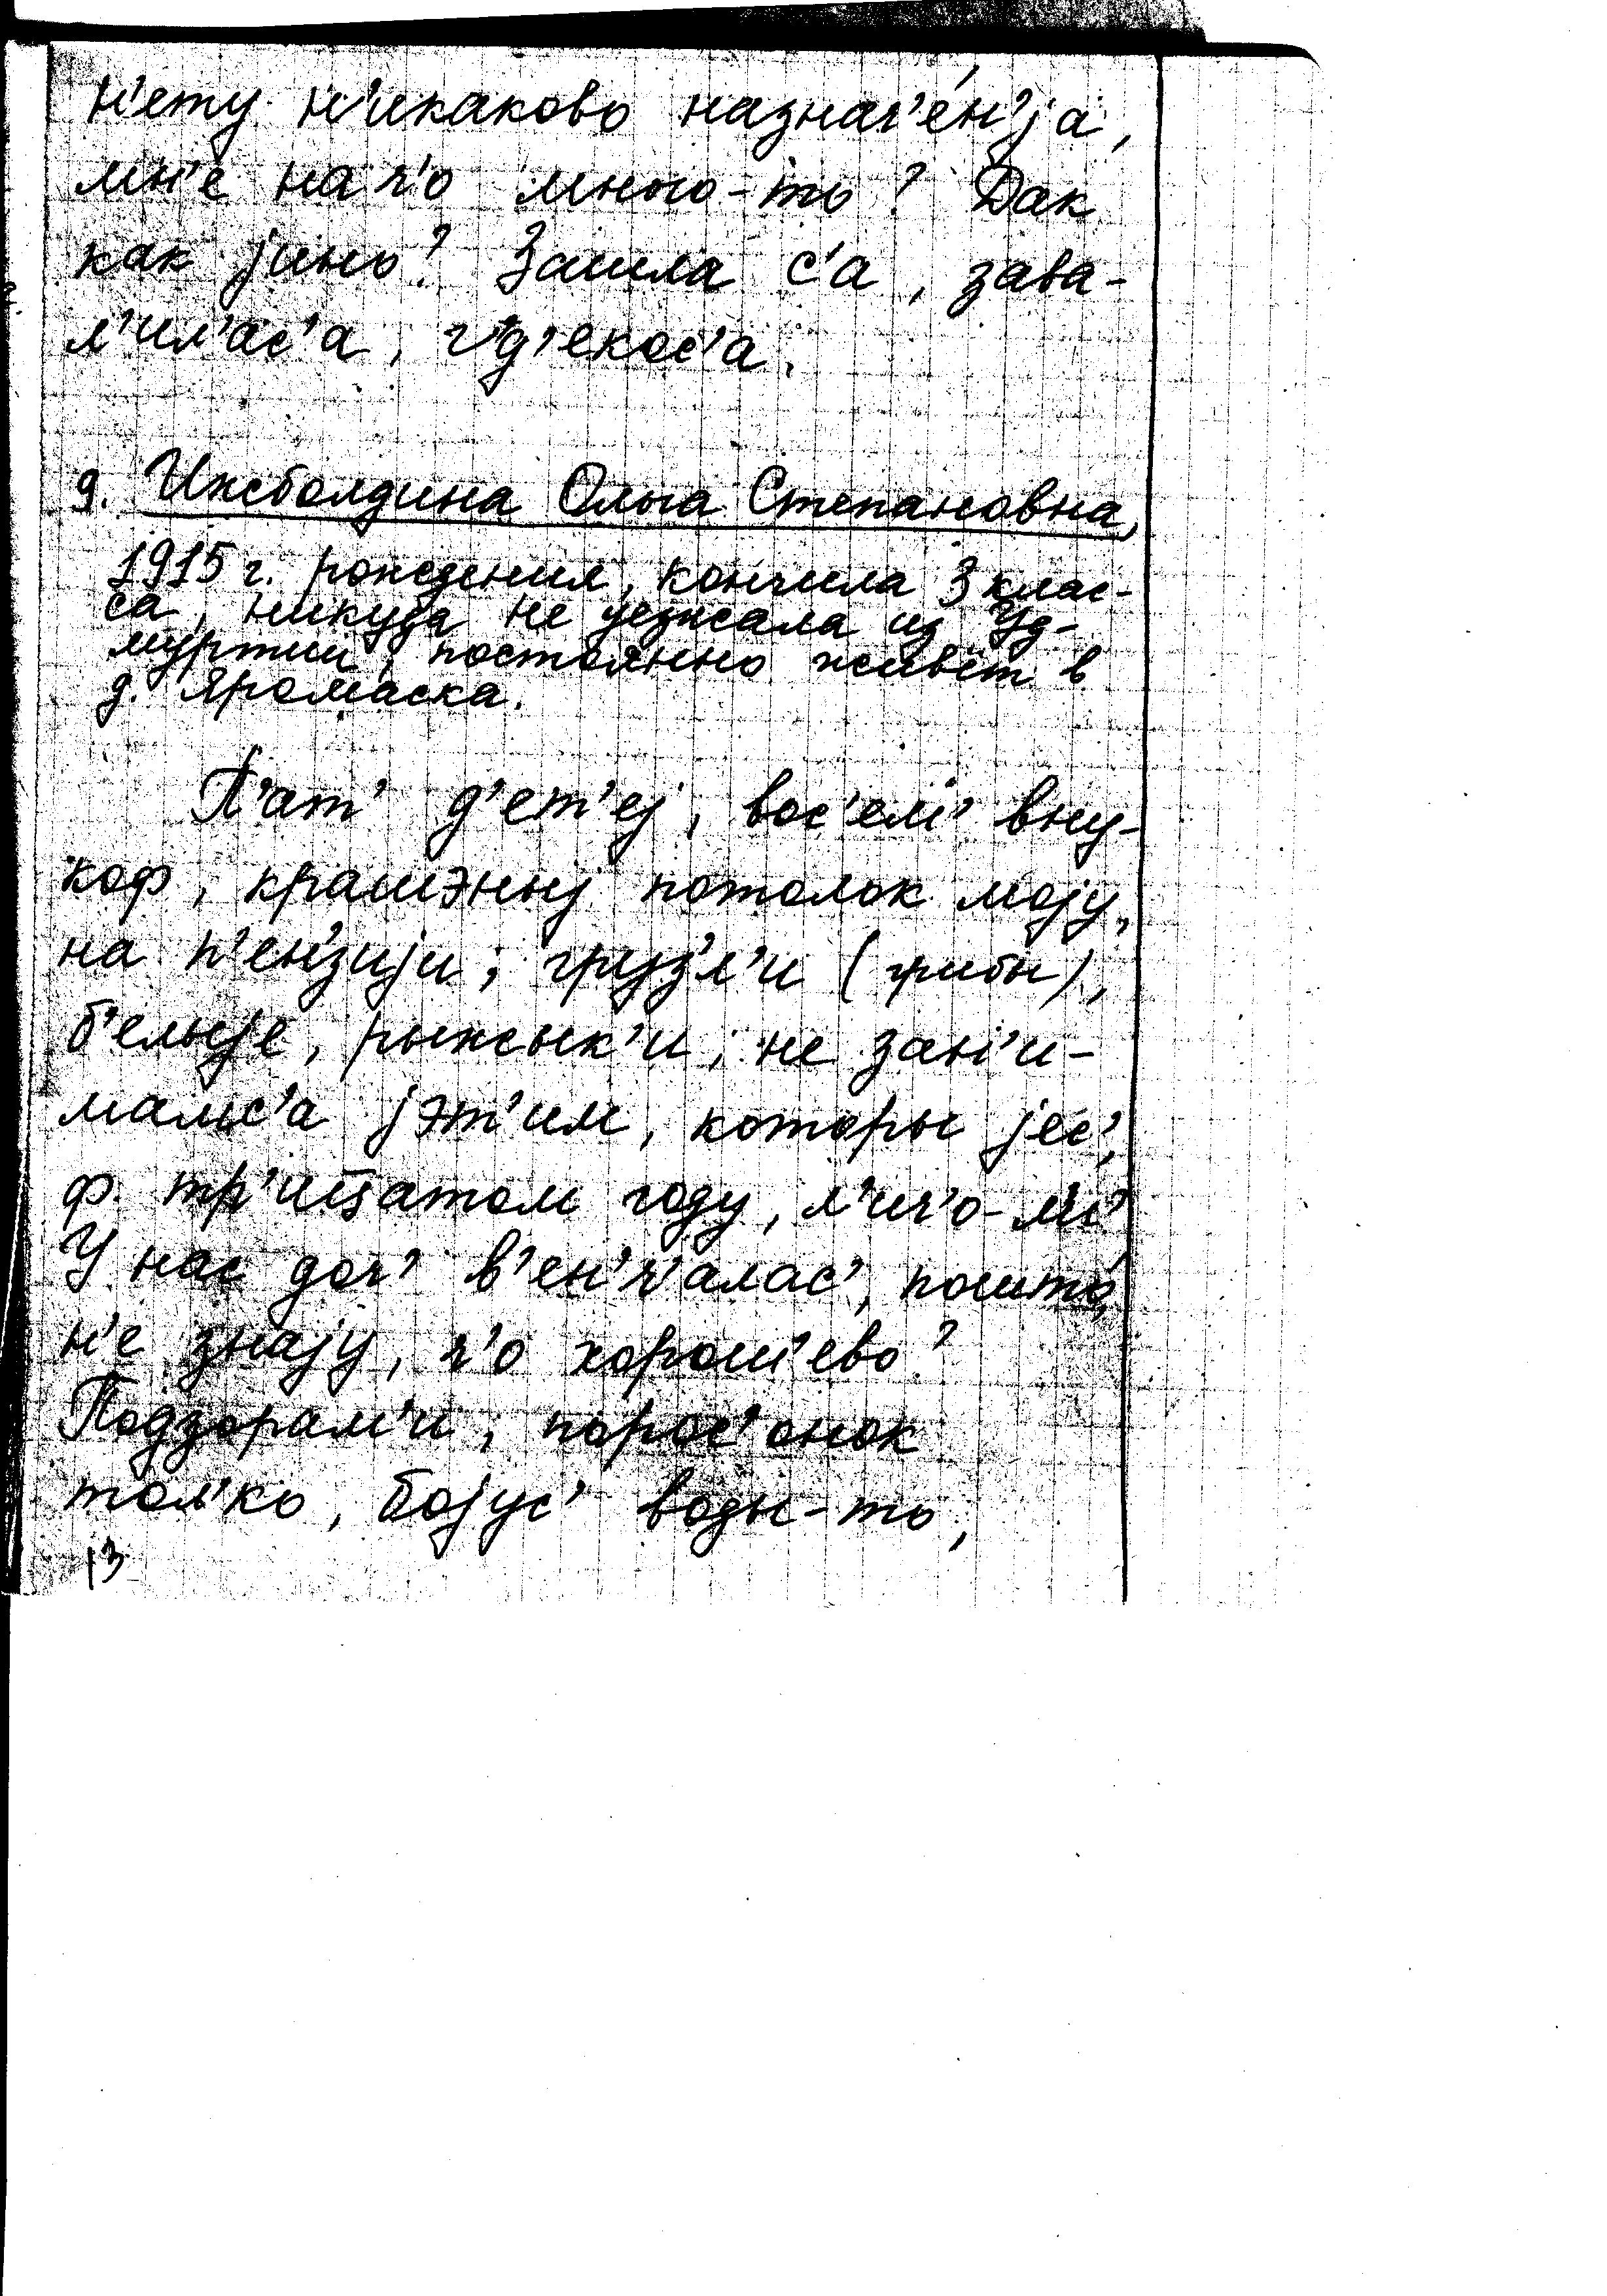 н'ету н'икаково назнач'е́н'jа,
мн'е на ч'о много-то? Дак
как jино? Зашла с'а, зава-
л'ил'ас'а, г'д'екос'а.
9. Инсболдина Ольга Степановна,
1915 г. рождения, кончила 3 клас-
са, никуда не уезжала из Уд-
муртии, постоянно живёт в
д. Яромаска.
П'ат' д'ет'еj, вос'ем' вну-
коф, крашэныj потолок моjу,
на п'ен'зиjи; груз'л'и (грибы),
б'елыjе, рыжык'и; не зан'и-
мамс'а jэт'им, которы jес',
ф. тр'ицатом году, л'ич'о-л'и
У нас доч' в'ен'ч'алас', пошто́,
н'е знаjу, ч'о хорош'ево?
Подзорам'и, порос'онок
тол'ко, боjус' воды-то,
13